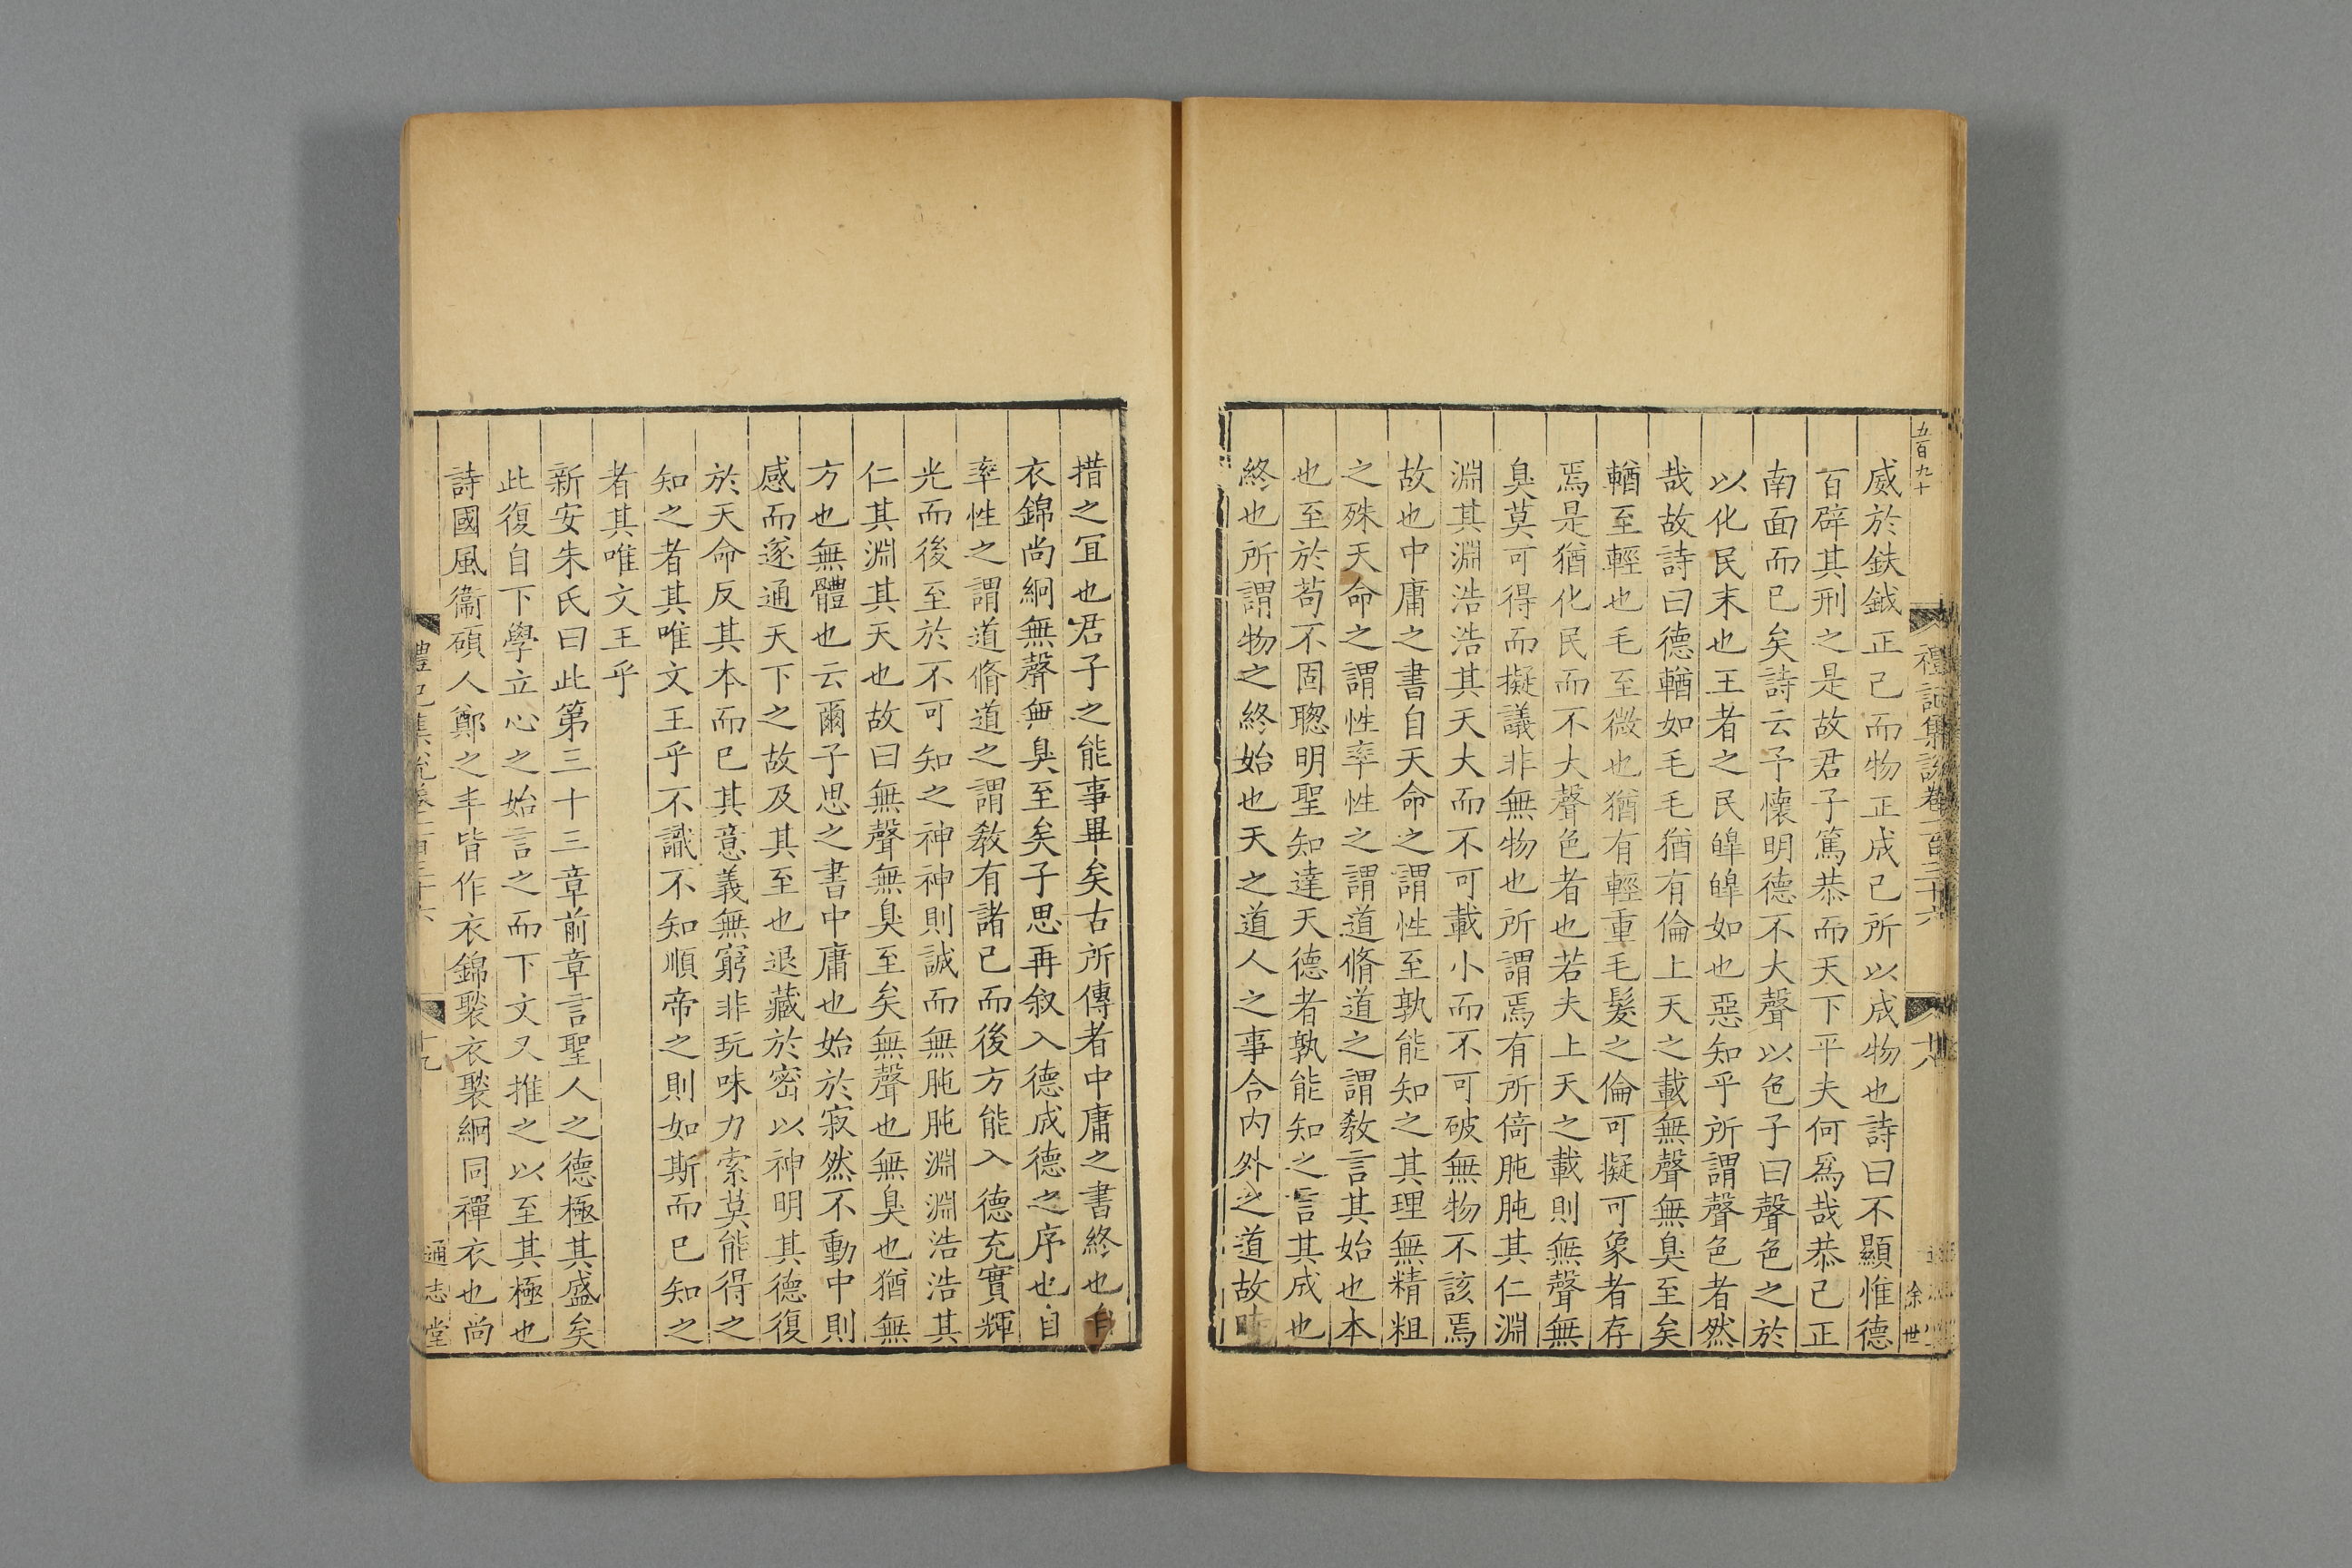 五百九十
禮記集說卷一百三十六
十八
徐世
威於鈇鉞正己而物正成己所以成物也詩曰不顯惟德
百辟其刑之是故君子篤恭而天下平夫何爲哉恭己正
南面而已矣詩云予懷明德不大聲以色子曰聲色之於
以化民末也王者之民皞皞如也惡知乎所謂聲色者然
哉故詩曰德輶如毛毛猶有倫上天之載無聲無臭至矣
輶至輕也毛至微也猶有輕重毛髮之倫可擬可象者存
焉是猶化民而不大聲色者也若夫上天之載則無聲無
臭莫可得而擬議非無物也所謂焉有所倚肫肫其仁淵
淵其淵浩浩其天大而不可載小而不可破無物不該焉
故也中庸之書自天命之謂性至孰能知之其理無精粗
之殊天命之謂性率性之謂道脩道之謂教言其始也本
也至於苟不固聰明聖知達天德者孰能知之言其成也
終也所謂物之終始也天之道人之事合內外之道故時
措之宜也君子之能事畢矣古所傳者中庸之書終也自
衣錦尚絅無聲無臭至矣子思再叙入德成德之序也自
率性之謂道脩道之謂教有諸己而後方能入德充實輝
光而後至於不可知之神神則誠而無肫肫淵淵浩浩其
仁其淵其天也故曰無聲無臭至矣無聲也無臭也猶無
方也無體也云爾子思之書中庸也始於寂然不動中則
感而遂通天下之故及其至也退藏於密以神明其德復
於天命反其本而已其意義無窮非玩味力索莫能得之
知之者其唯文王乎不識不知順帝之則如斯而已知之
者其唯文王乎
新安朱氏曰此第三十三章前章言聖人之德極其盛矣
此復自下學立心之始言之而下文又推之以至其極也
詩國風衞碩人鄭之丰皆作衣錦褧衣褧絅同禪衣也尚
禮記集說卷一百三十六
十九
通志堂